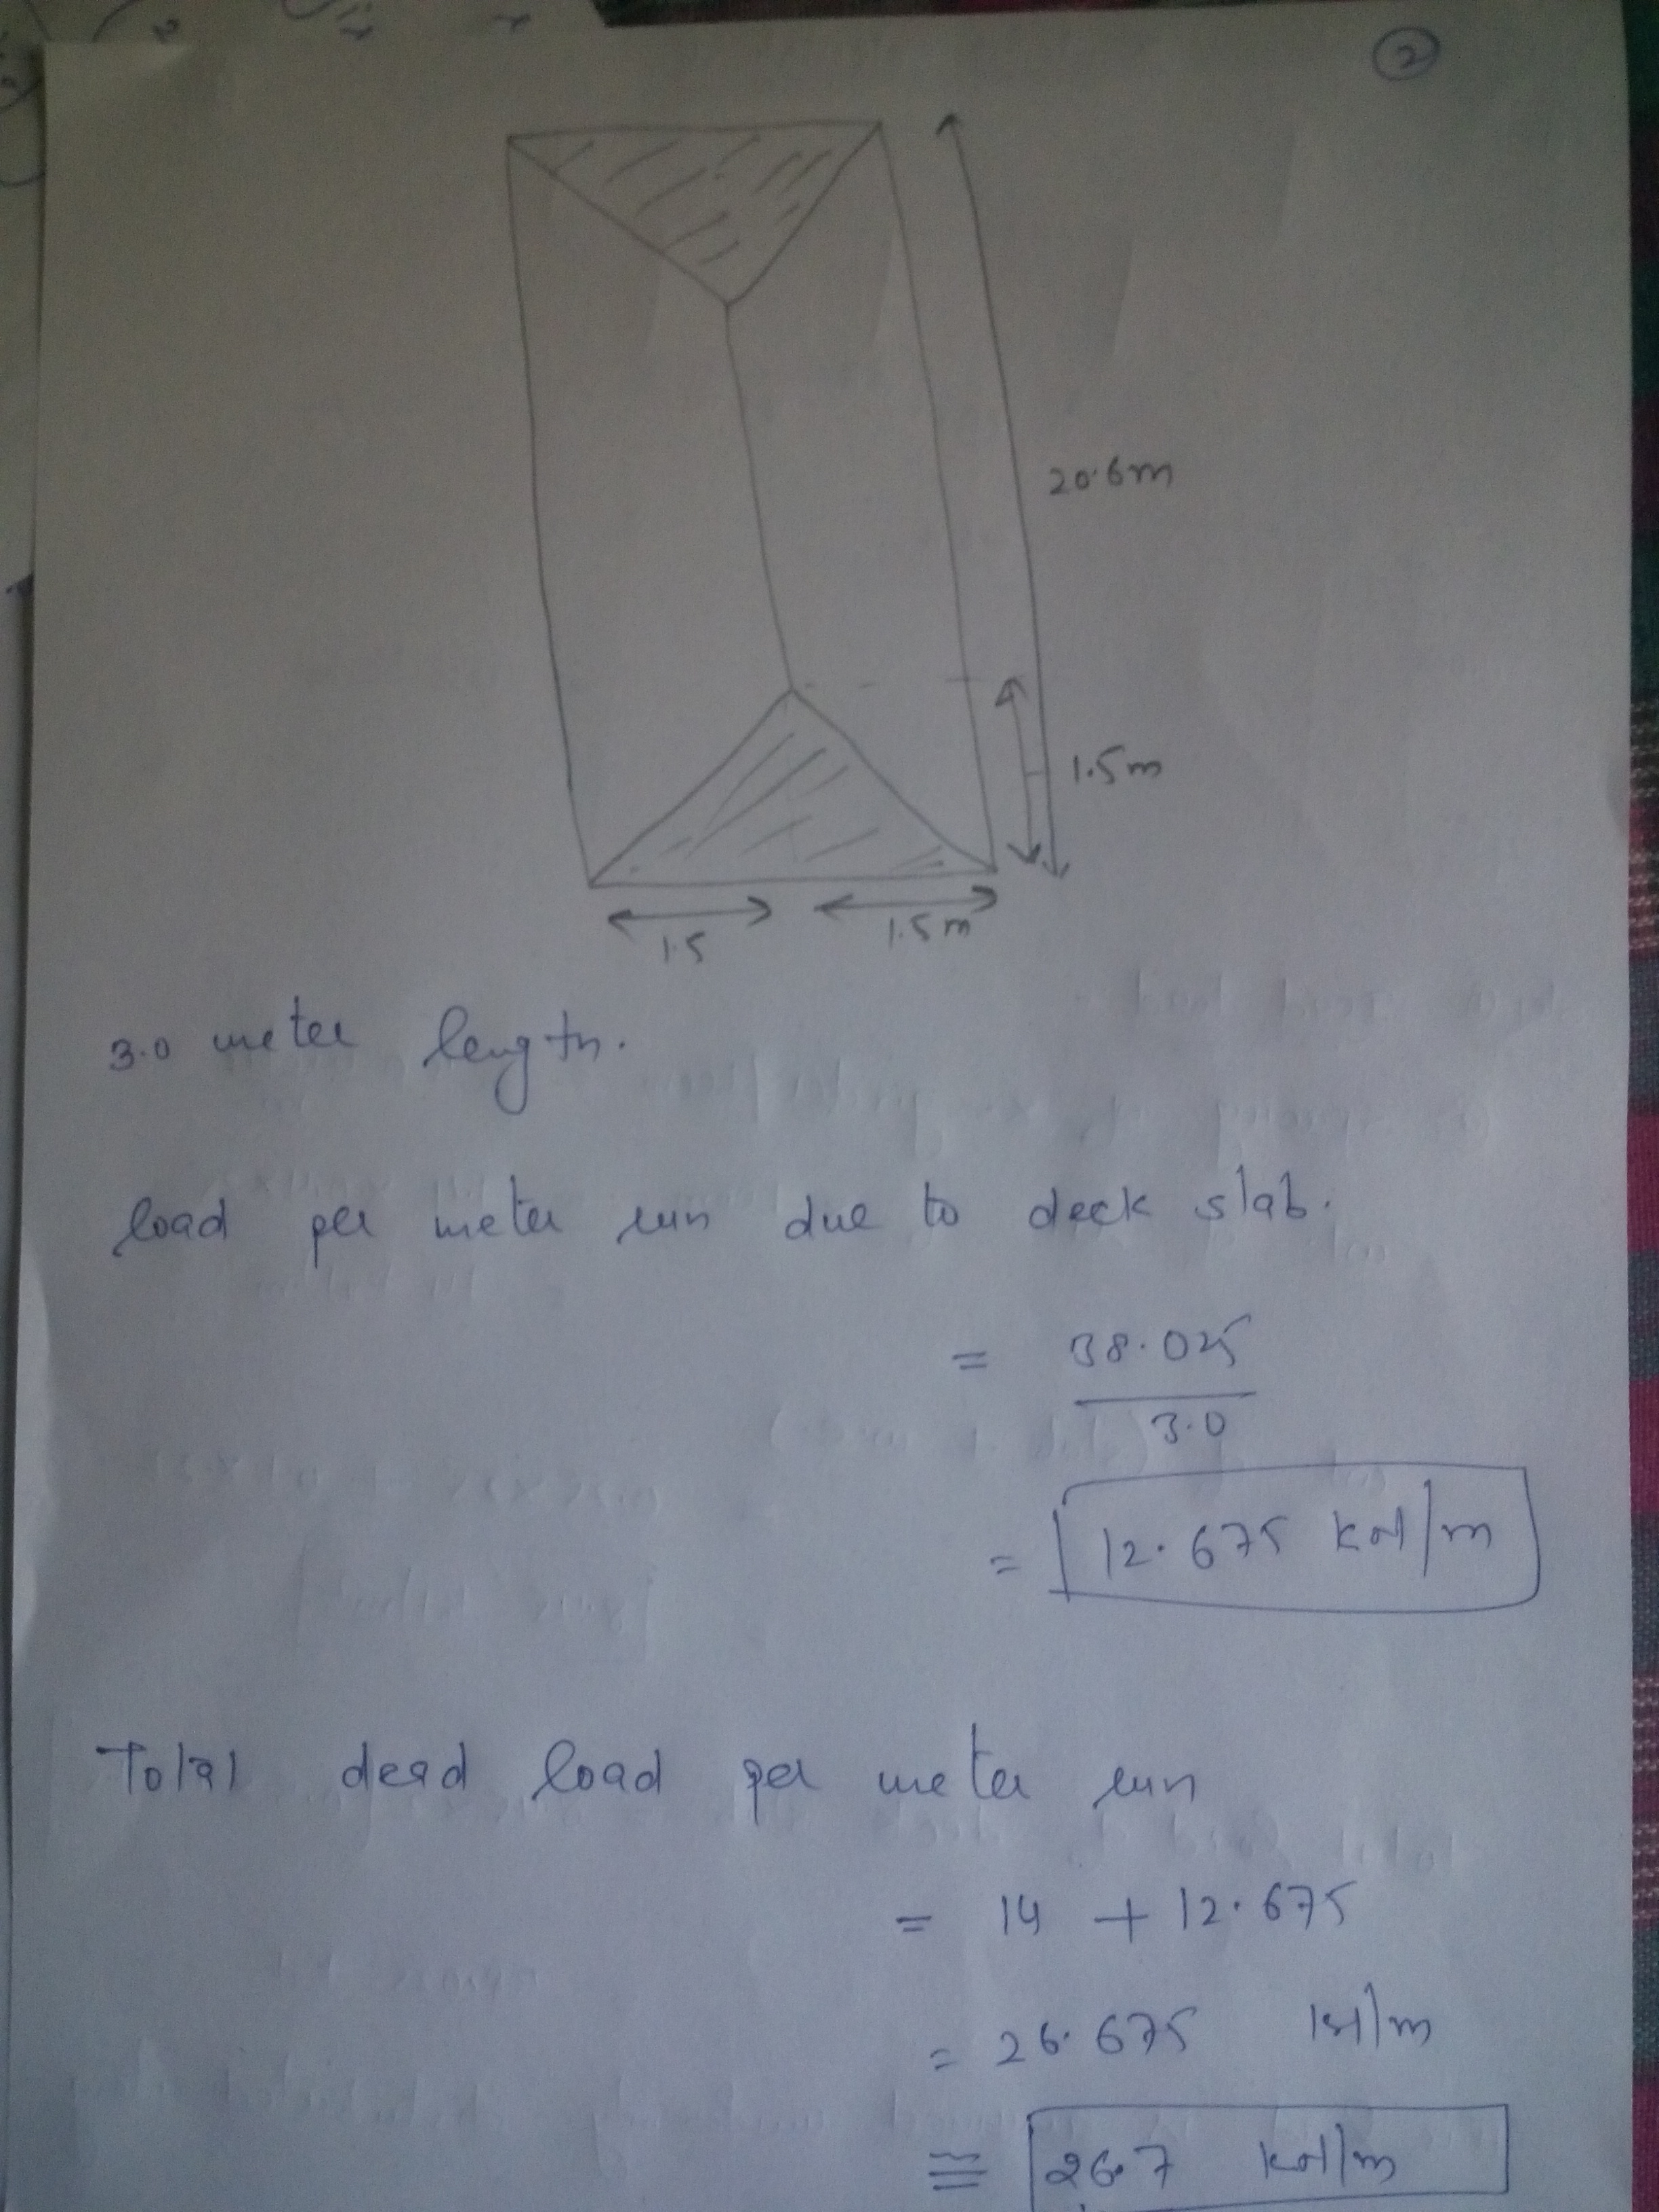 2
20.6m
1.5m
1.5
1.5m
3.0 meter length.
load per meter run due to deck slab.
= 38.025
3.0
= 12.675 kN/m
Total dead load per meter run
= 14 + 12.675
= 26.675 kN/m
≅ 26.7 kN/m